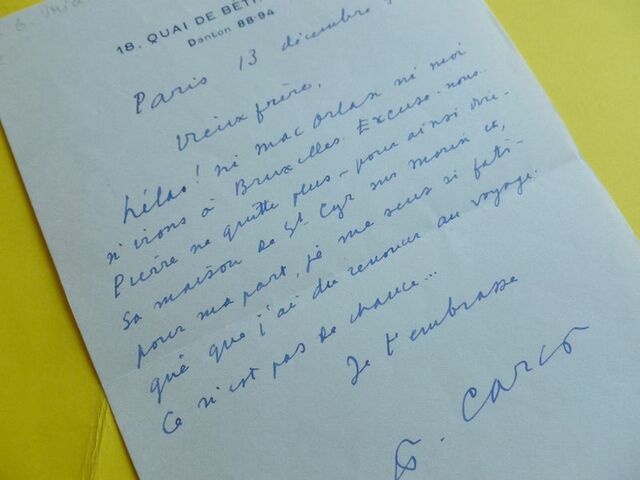 18, QUAI DE BÉTH
Danton 88-94
Paris 13 décembre
Vieux frère,
hélas! ni mac Orlan ni moi
n'irons à Bruxelles. Excuse-nous.
Pierre ne quitte plus – pour ainsi dire –
sa maison de St Cyr sur Morin et,
pour ma part, je me sens si fati-
gué que j'ai dû renoncer au voyage.
Ce n'est pas de chance...
Je t'embrasse
F. Carco